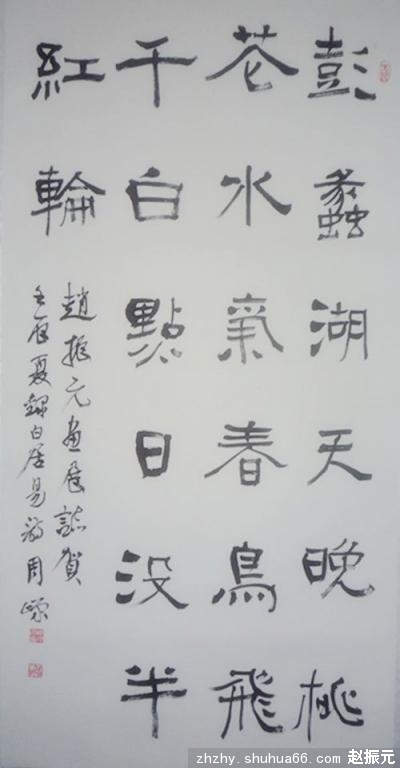 彭蠡湖天晚桃
花水氣春鳥飛
千白點日没半
紅輪
趙振元畫展誌賀
壬辰夏録白居易詩周
zhzhy.shuhua66.com 赵振元